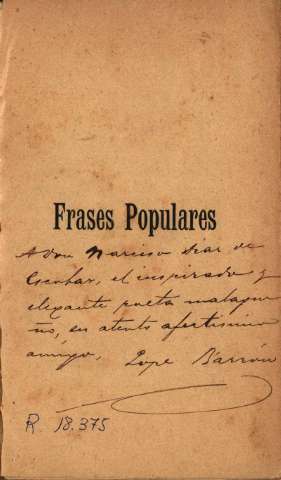 Frases Populares
A don Narciso Díaz de
Escobar, el inspirado y
elegante poeta malague
ño, su atento afectísimo
amigo, Lope Barrón
R 18.375